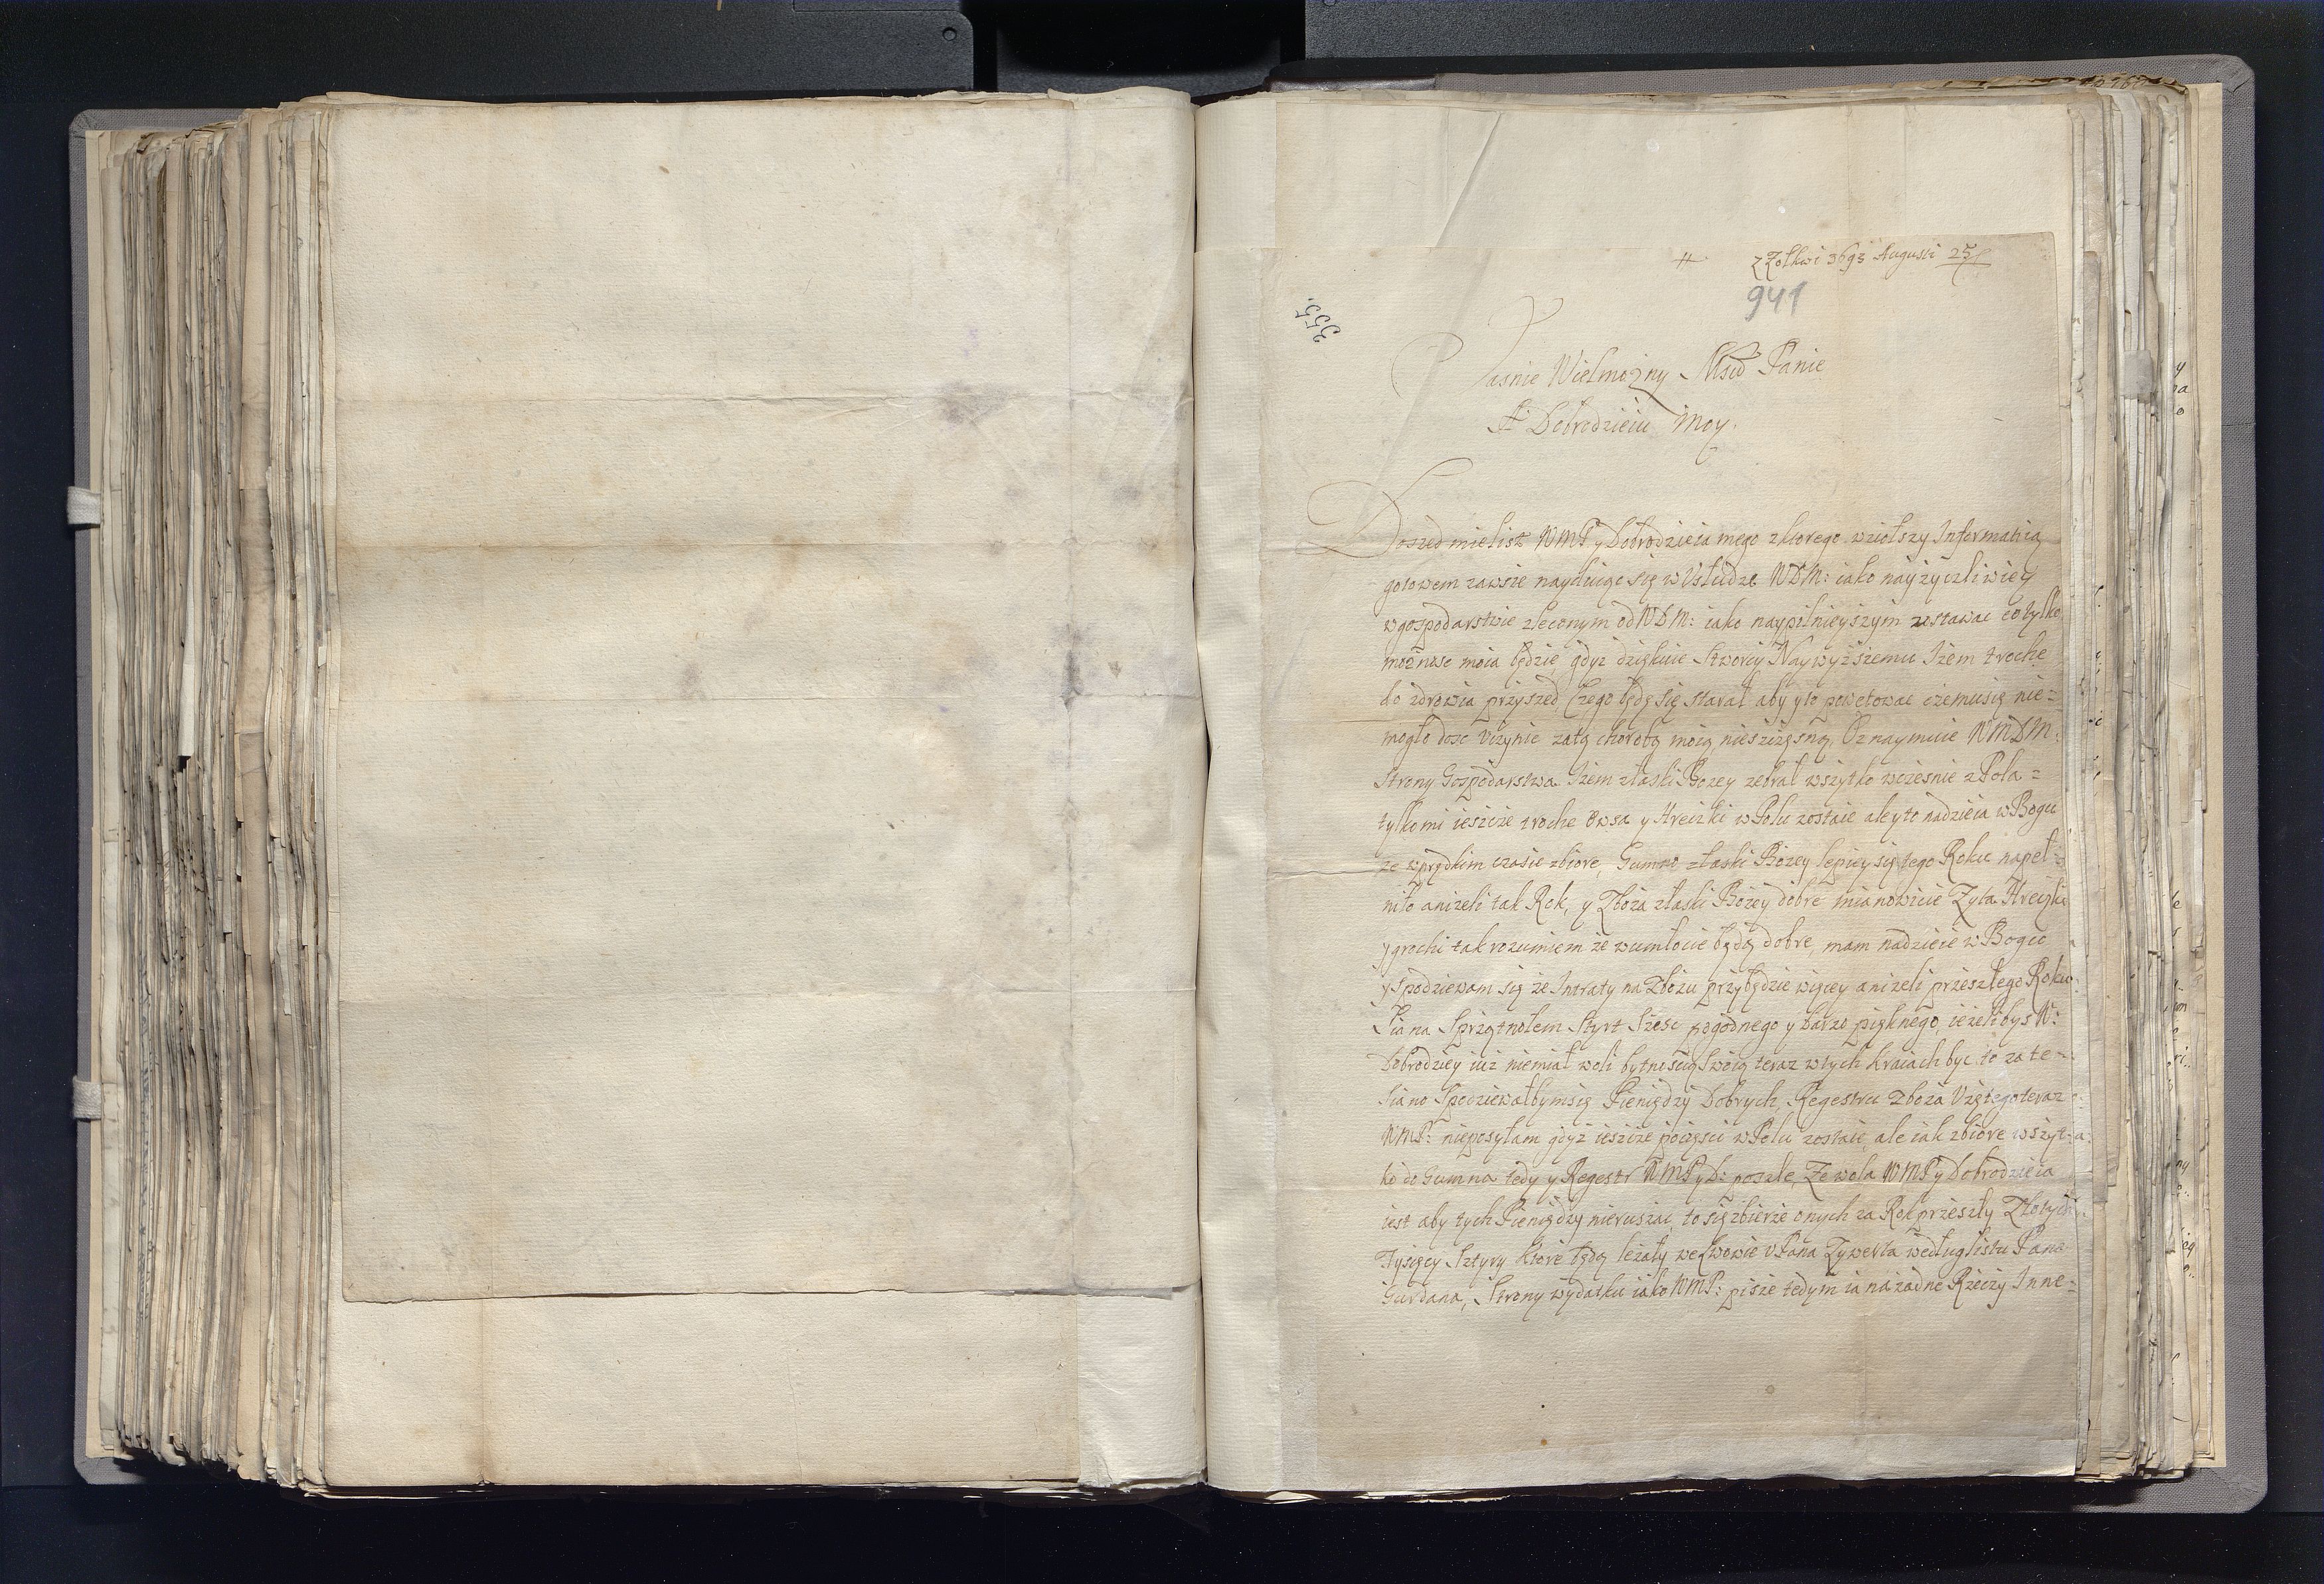 # z Zołkwi 1693 Augusti 25
941
355.
Jasnie Wielmozny Msci Panie
A Dobrodzieiu Moy.
Doszed mie list WMP y Dobrodzieia mego z ktorego wziołszy Informatią
gotowem zawsze nayduięc się w Usłudze WDM: iako nayzyczliwiey
w gospodarstwie zleconym od WDM: iako naypilnieyszym zostawac co tylko
moznosc moia będzie, gdyz dziękuie Stworcy Naywyższemu Iżem troche
do zdrowia przyszed, Czego będę się starał aby y to powetowac czemu się nie=
mogło dosc Uczynic za tą chorobą moią nieszczęsną, Oznaymuie WMDM:
Strony Gospodarstwa Iżem z łaski Bozey zebrał wszytko wczesnie z Pola=
tylko mi ieszcze troche Owsa y Hreczki w Polu zostaie ale y to nadzieia w Bogu
ze w prędkim czasie zbiore, Gumno z łaski Bozey lepiey się tego Roku napeł=
niło anizeli tak Rok, y Zboza z łaski Bozey dobre mianowicie Zyta Hreczki
y grochi tak rozumiem ze w umłocie będą dobre, mam nadzieie w Bogu
y spodziewam się ze Intraty na Zbozu przybędzie więcey anizeli przeszłego Roku.
Siana Sprzątnołem Styrt Szesc pogodnego y barzo pięknego, iezelibys W:
Dobrodziey iuz niemiał woli bytnoscią Swoią teraz w tych Kraiach byc to za te=
Siano Spodziewałbym się Pieniędzy Dobrych, Regestru Zboza Uzętego teraz
WMP: nieposyłam gdyz ieszcze poczęsci w Polu zostaie, ale iak zbiore wszyt=
ko do Gumna tedy y Regestr WMP y D: poszle, Ze wola WMP y Dobrodzieia
iest aby tych Pieniędzy nieruszac, to się zbierze onych za Rok przeszły Złotych
Tysięcy Sztyry ktore będą lezały we Lwowie u Pana Zywerta według listu Pana
Gurdana, Strony wydatku iako WMP: pisze tedym ia na zadne Rzeczy Inne=